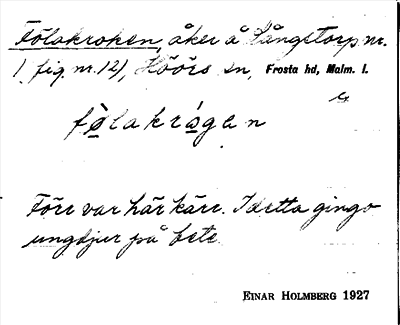 Fölakroken, åker å Långstorp nr.
1 fig. nr. 121, Höörs sn, Frosta hd, Malm. l.
fölakrågen
Förr var här kärr. I detta gingo
ungdjur på bete
EINAR HOLMBERG 1927